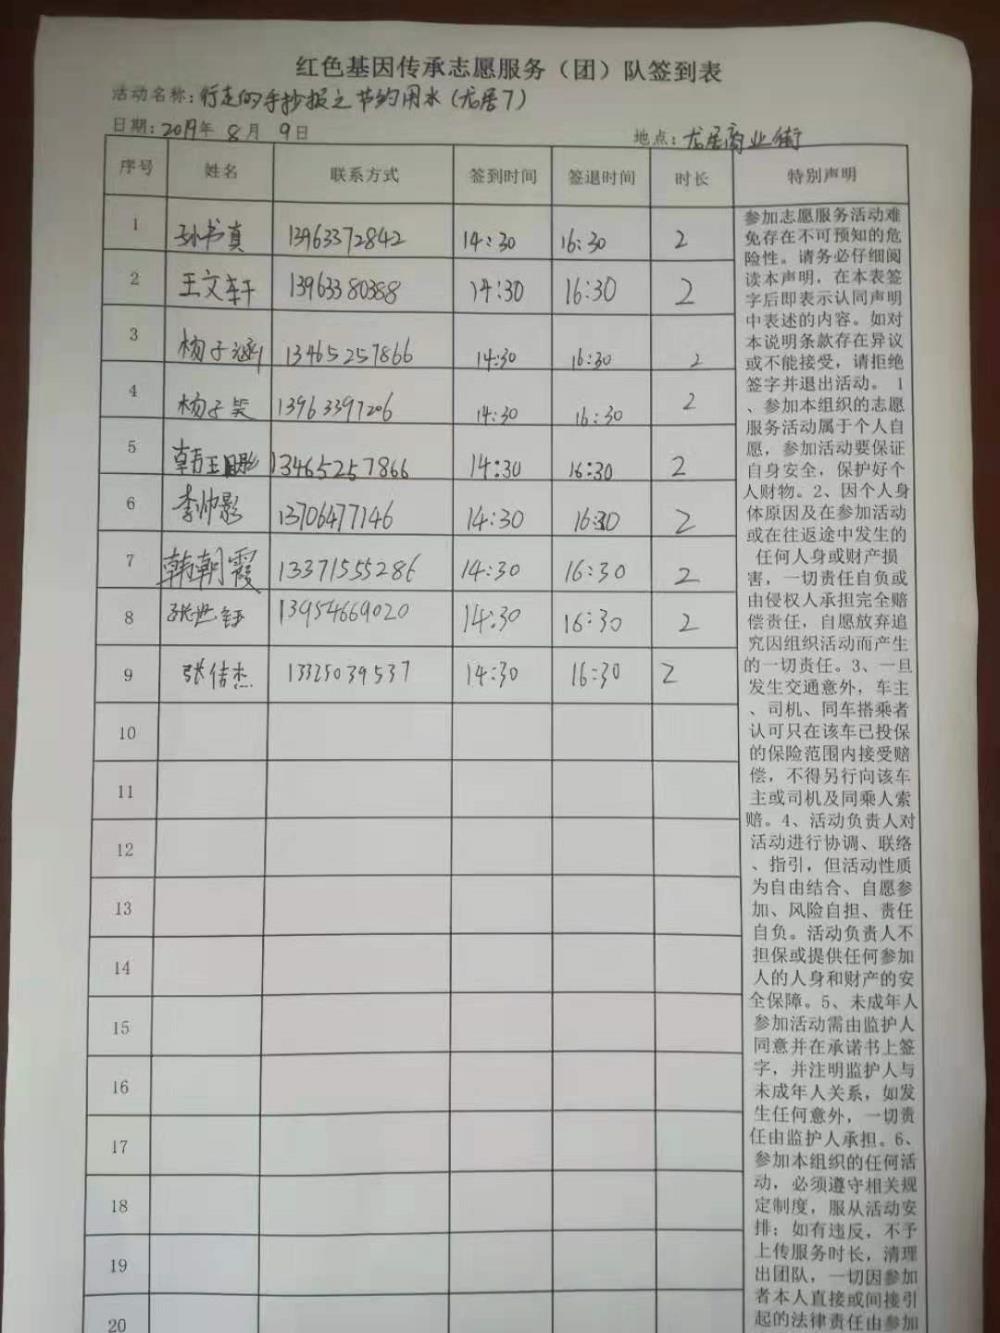 红色基因传承志愿服务（团）队签到表
活动名称：行走的手抄报之节约用水（龙居7）
日期：2019年 8月 9日 地点：龙居商业街
序号 姓名 联系方式 签到时间 签退时间 时长 特别声明
1 孙书真 13963372842 14:30 16:30 2
2 王文轩 13963380388 14:30 16:30 2
3 杨子涵 13465257866 14:30 16:30 2
4 杨子笑 13963397206 14:30 16:30 2
5 韩玉 13465257866 14:30 16:30 2
6 李帅影 13706477146 14:30 16:30 2
7 韩朝霞 13371555286 14:30 16:30 2
8 张世钰 13954669020 14:30 16:30 2
9 张佶杰 13325039537 14:30 16:30 2
10
11
12
13
14
15
16
17
18
19
20
参加志愿服务活动难
免存在不可预知的危
险性。请务必仔细阅
读本声明，在本表签
字后即表示认同声明
中表述的内容。如对
本说明条款存在异议
或不能接受，请拒绝
签字并退出活动。 1
、参加本组织的志愿
服务活动属于个人自
愿，参加活动要保证
自身安全，保护好个
人财物。2、因个人身
体原因及在参加活动
或在往返途中发生的
任何人身或财产损
害，一切责任自负或
由侵权人承担完全赔
偿责任，自愿放弃追
究因组织活动而产生
的一切责任。3、一旦
发生交通意外，车主
、司机、同车搭乘者
认可只在该车已投保
的保险范围内接受赔
偿，不得另行向该车
主或司机及同乘人索
赔。4、活动负责人对
活动进行协调、联络
、指引，但活动性质
为自由结合、自愿参
加、风险自担、责任
自负。活动负责人不
担保或提供任何参加
人的人身和财产的安
全保障。5、未成年人
参加活动需由监护人
同意并在承诺书上签
字，并注明监护人与
未成年人关系，如发
生任何意外，一切责
任由监护人承担。6、
参加本组织的任何活
动，必须遵守相关规
定制度，服从活动安
排；如有违反，不予
上传服务时长，清理
出团队，一切因参加
者本人直接或间接引
起的法律责任由参加